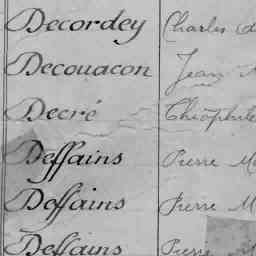 Decordey Charles
Decouacon Jean
Decré Théophile
Deffains Pierre
Deffains Pierre M
Deffains Pierre